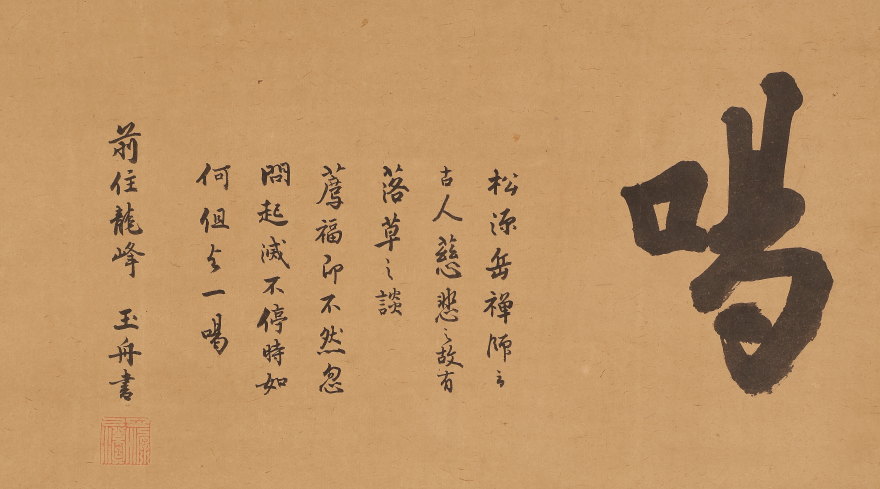 喝
松源岳禅師云
古人慈悲之故有
落草之談
薦福即不然忽
問起滅不停時如
何但与一喝
前住龍峰 玉舟書